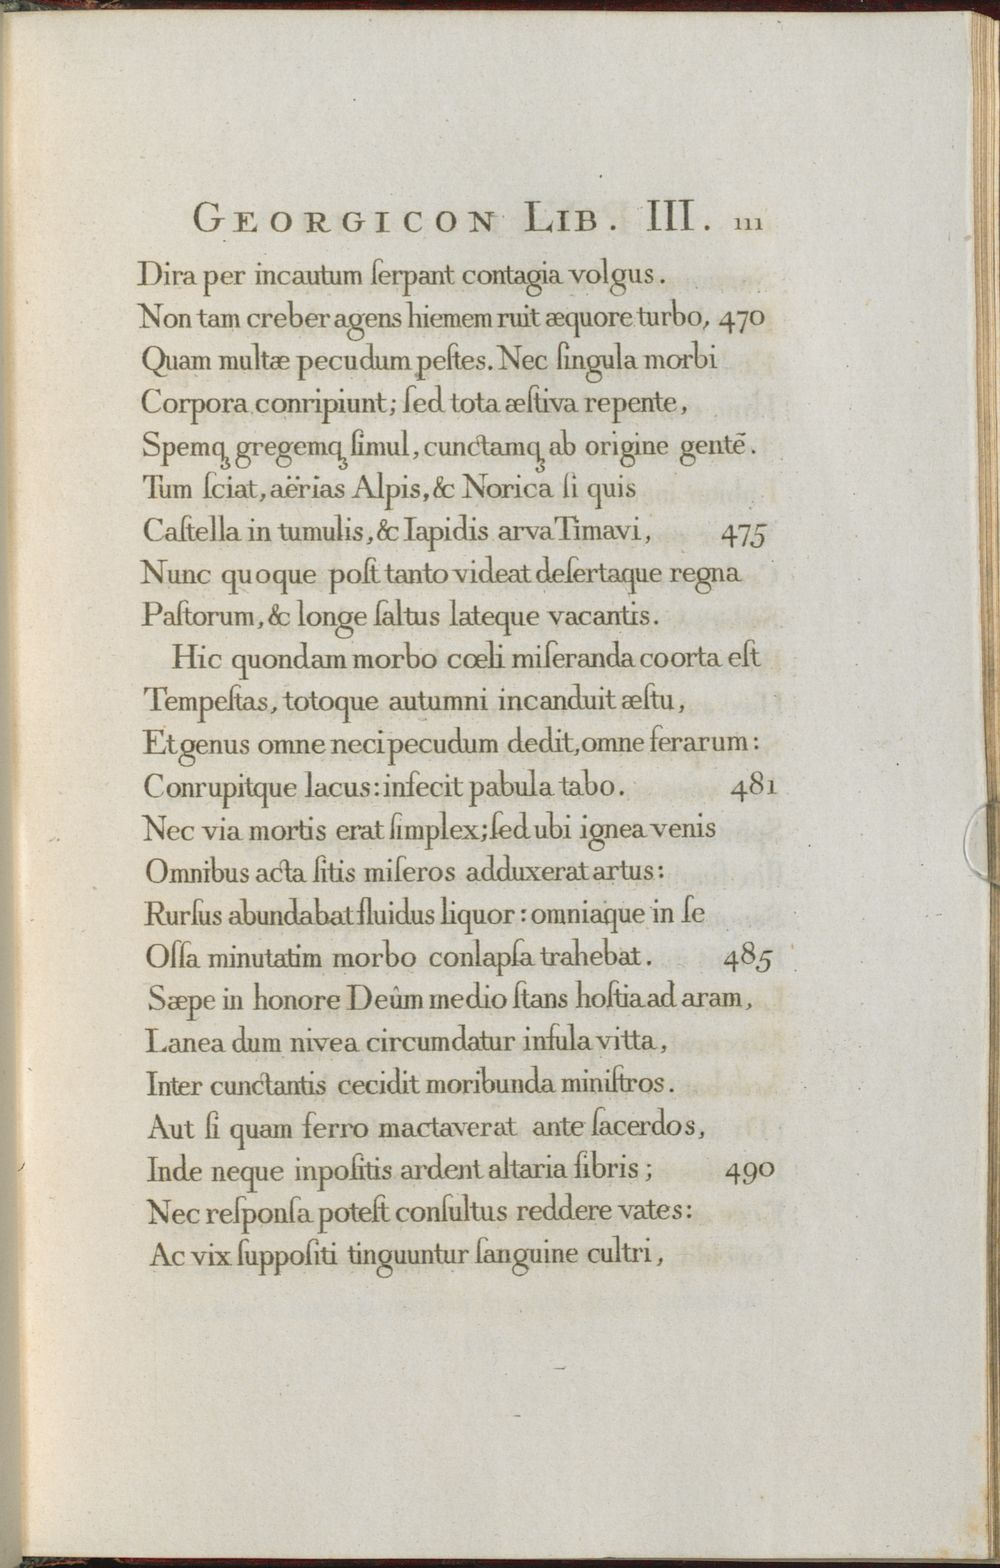 GEORGICON LIB. III. 111
Dira per incautum ſerpant contagia volgus.
Non tam creber agens hiemem ruit æquore turbo, 470
Quam multæ pecudum peſtes. Nec ſingula morbi
Corpora conripiunt; ſed tota æſtiva repente,
Spemqꝫ gregemqꝫ ſimul, cunctamqꝫ ab origine gentẽ.
Tum ſciat, aërias Alpis, & Norica ſi quis
Caſtella in tumulis, & Iapidis arva Timavi, 475
Nunc quoque poſt tanto videat deſertaque regna
Paſtorum, & longe ſaltus lateque vacantis.
Hic quondam morbo cœli miſeranda coorta eſt
Tempeſtas, totoque autumni incanduit æſtu,
Et genus omne neci pecudum dedit, omne ferarum:
Conrupitque lacus: infecit pabula tabo. 481
Nec via mortis erat ſimplex; ſed ubi ignea venis
Omnibus acta ſitis miſeros adduxerat artus:
Rurſus abundabat fluidus liquor: omniaque in ſe
Oſſa minutatim morbo conlapſa trahebat. 485
Sæpe in honore Deûm medio ſtans hoſtia ad aram,
Lanea dum nivea circumdatur infula vitta,
Inter cunctantis cecidit moribunda miniſtros.
Aut ſi quam ferro mactaverat ante ſacerdos,
Inde neque inpoſitis ardent altaria fibris; 490
Nec reſponſa poteſt conſultus reddere vates:
Ac vix ſuppoſiti tinguuntur ſanguine cultri,